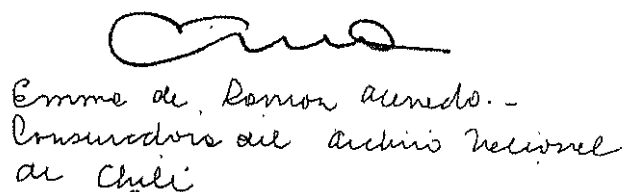 Emma de Ramon Acevedo.-
Conservadora del Archivo Nacional
de Chile